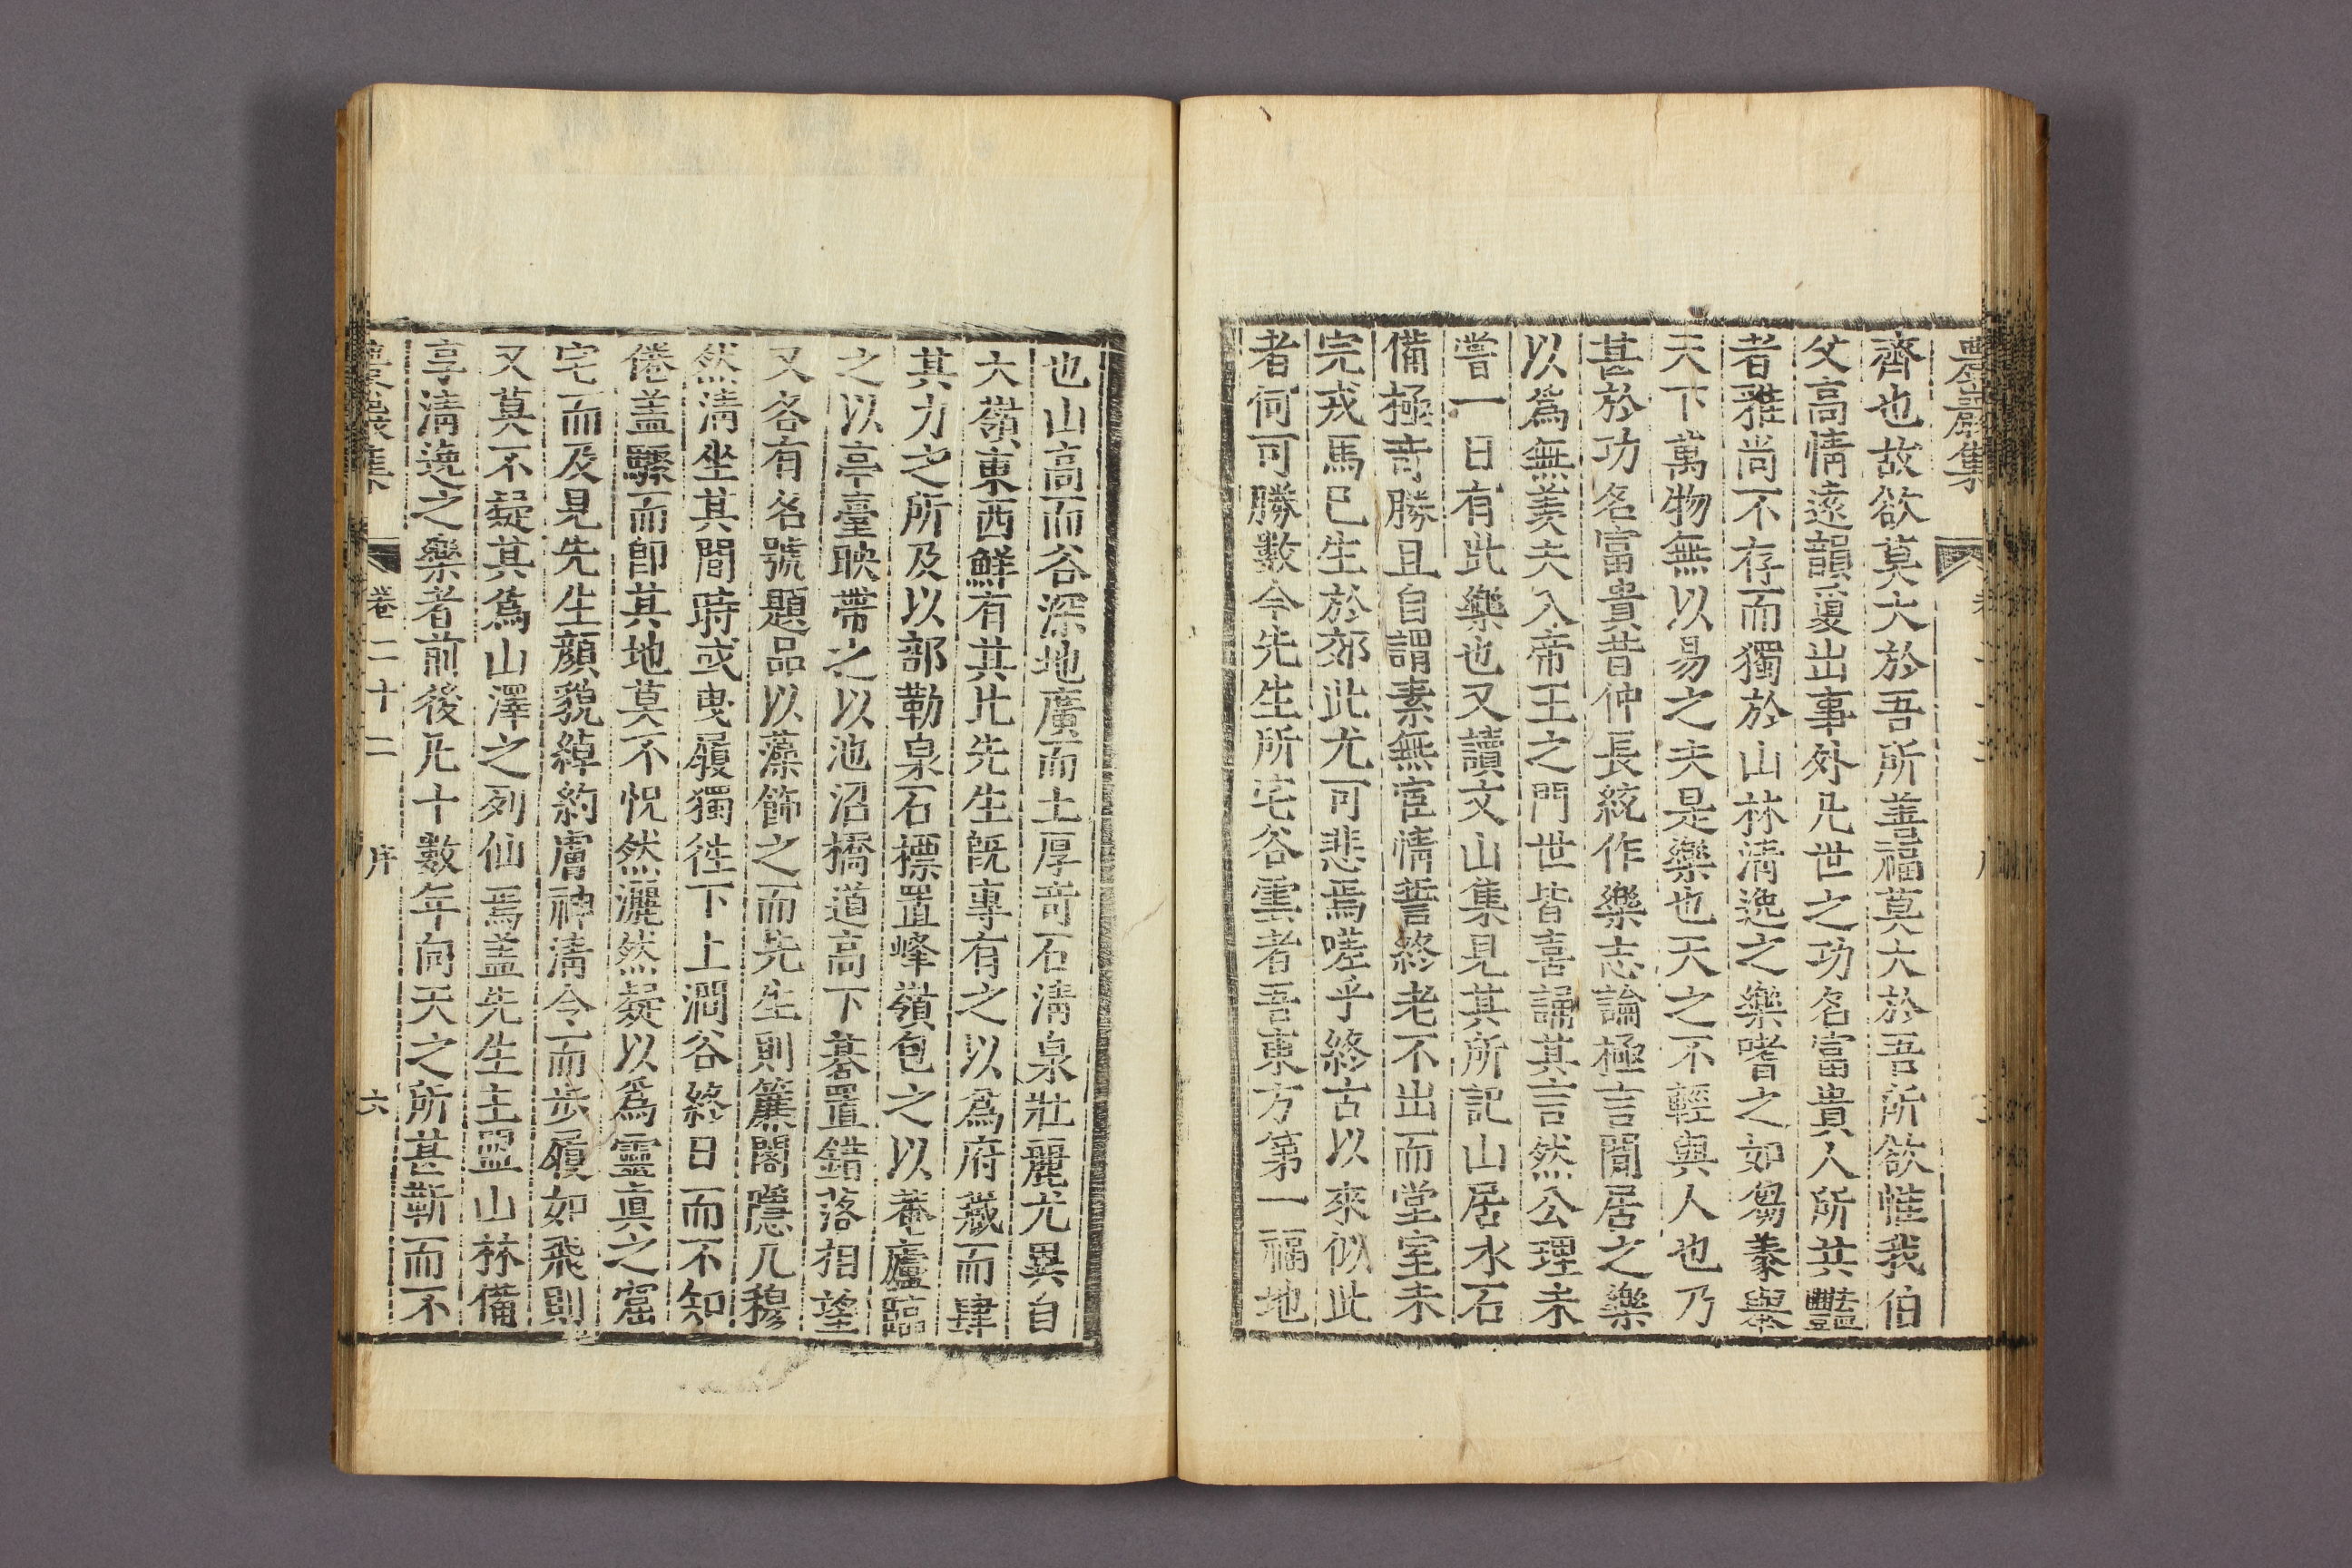 農巖集
齊也故欲莫大於吾所善福莫大於吾所欲惟我伯
父高情遠韻夐出事外凡世之功名富貴人所共豔
者雅尚不存而獨於山林清逸之樂嗜之如芻豢舉
天下萬物無以易之夫是樂也天之不輕與人也乃
甚於功名富貴昔仲長統作樂志論極言閒居之樂
以爲無羡夫入帝王之門世皆喜誦其言然公理未
嘗一日有此樂也又讀文山集見其所記山居水石
備極奇勝且自謂素無宦情誓終老不出而堂室未
完戎馬已生於郊此尤可悲焉嗟乎終古以來似此
者何可勝數今先生所宅谷雲者吾東方第一福地
也山高而谷深地廣而土厚奇石清泉壯麗尤異自
大嶺東西鮮有其比先生旣專有之以爲府藏而肆
其力之所及以部勒泉石標置峰嶺包之以菴廬臨
之以亭臺映帶之以池沼橋道高下碁置錯落相望
又各有名號題品以藻飾之而先生則簾閣隱几穆
然清坐其間時或曳履獨徃下上澗谷終日而不知
倦盖驟而卽其地莫不怳然灑然疑以爲靈眞之窟
宅而及見先生顏貌綽約膚神清令而步履如飛則
又莫不疑其爲山澤之列仙焉盖先生主盟山林備
享清逸之樂者前後凡十數年向天之所甚靳而不
農巖集 卷二十二 序 六